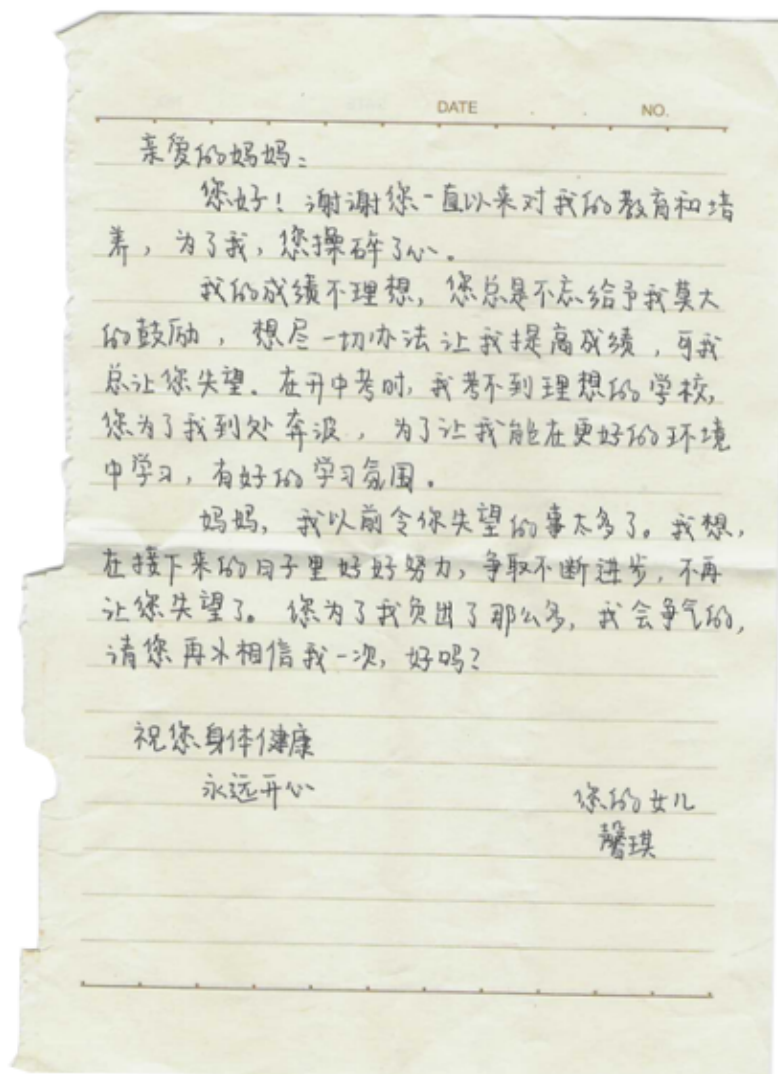 DATE . . NO.
亲爱的妈妈:
您好! 谢谢您一直以来对我的教育和培
养, 为了我, 您操碎了心。
我的成绩不理想, 您总是不忘给予我莫大
的鼓励, 想尽一切办法让我提高成绩, 可我
总让您失望. 在升中考时, 我考不到理想的学校,
您为了我到处奔波, 为了让我能在更好的环境
中学习, 有好的学习氛围。
妈妈, 我以前令你失望的事太多了。我想,
在接下来的日子里好好努力, 争取不断进步, 不再
让您失望了。您为了我负出了那么多, 我会争气的,
请您再次相信我一次, 好吗?
祝您身体健康
永远开心
您的女儿
馨琪